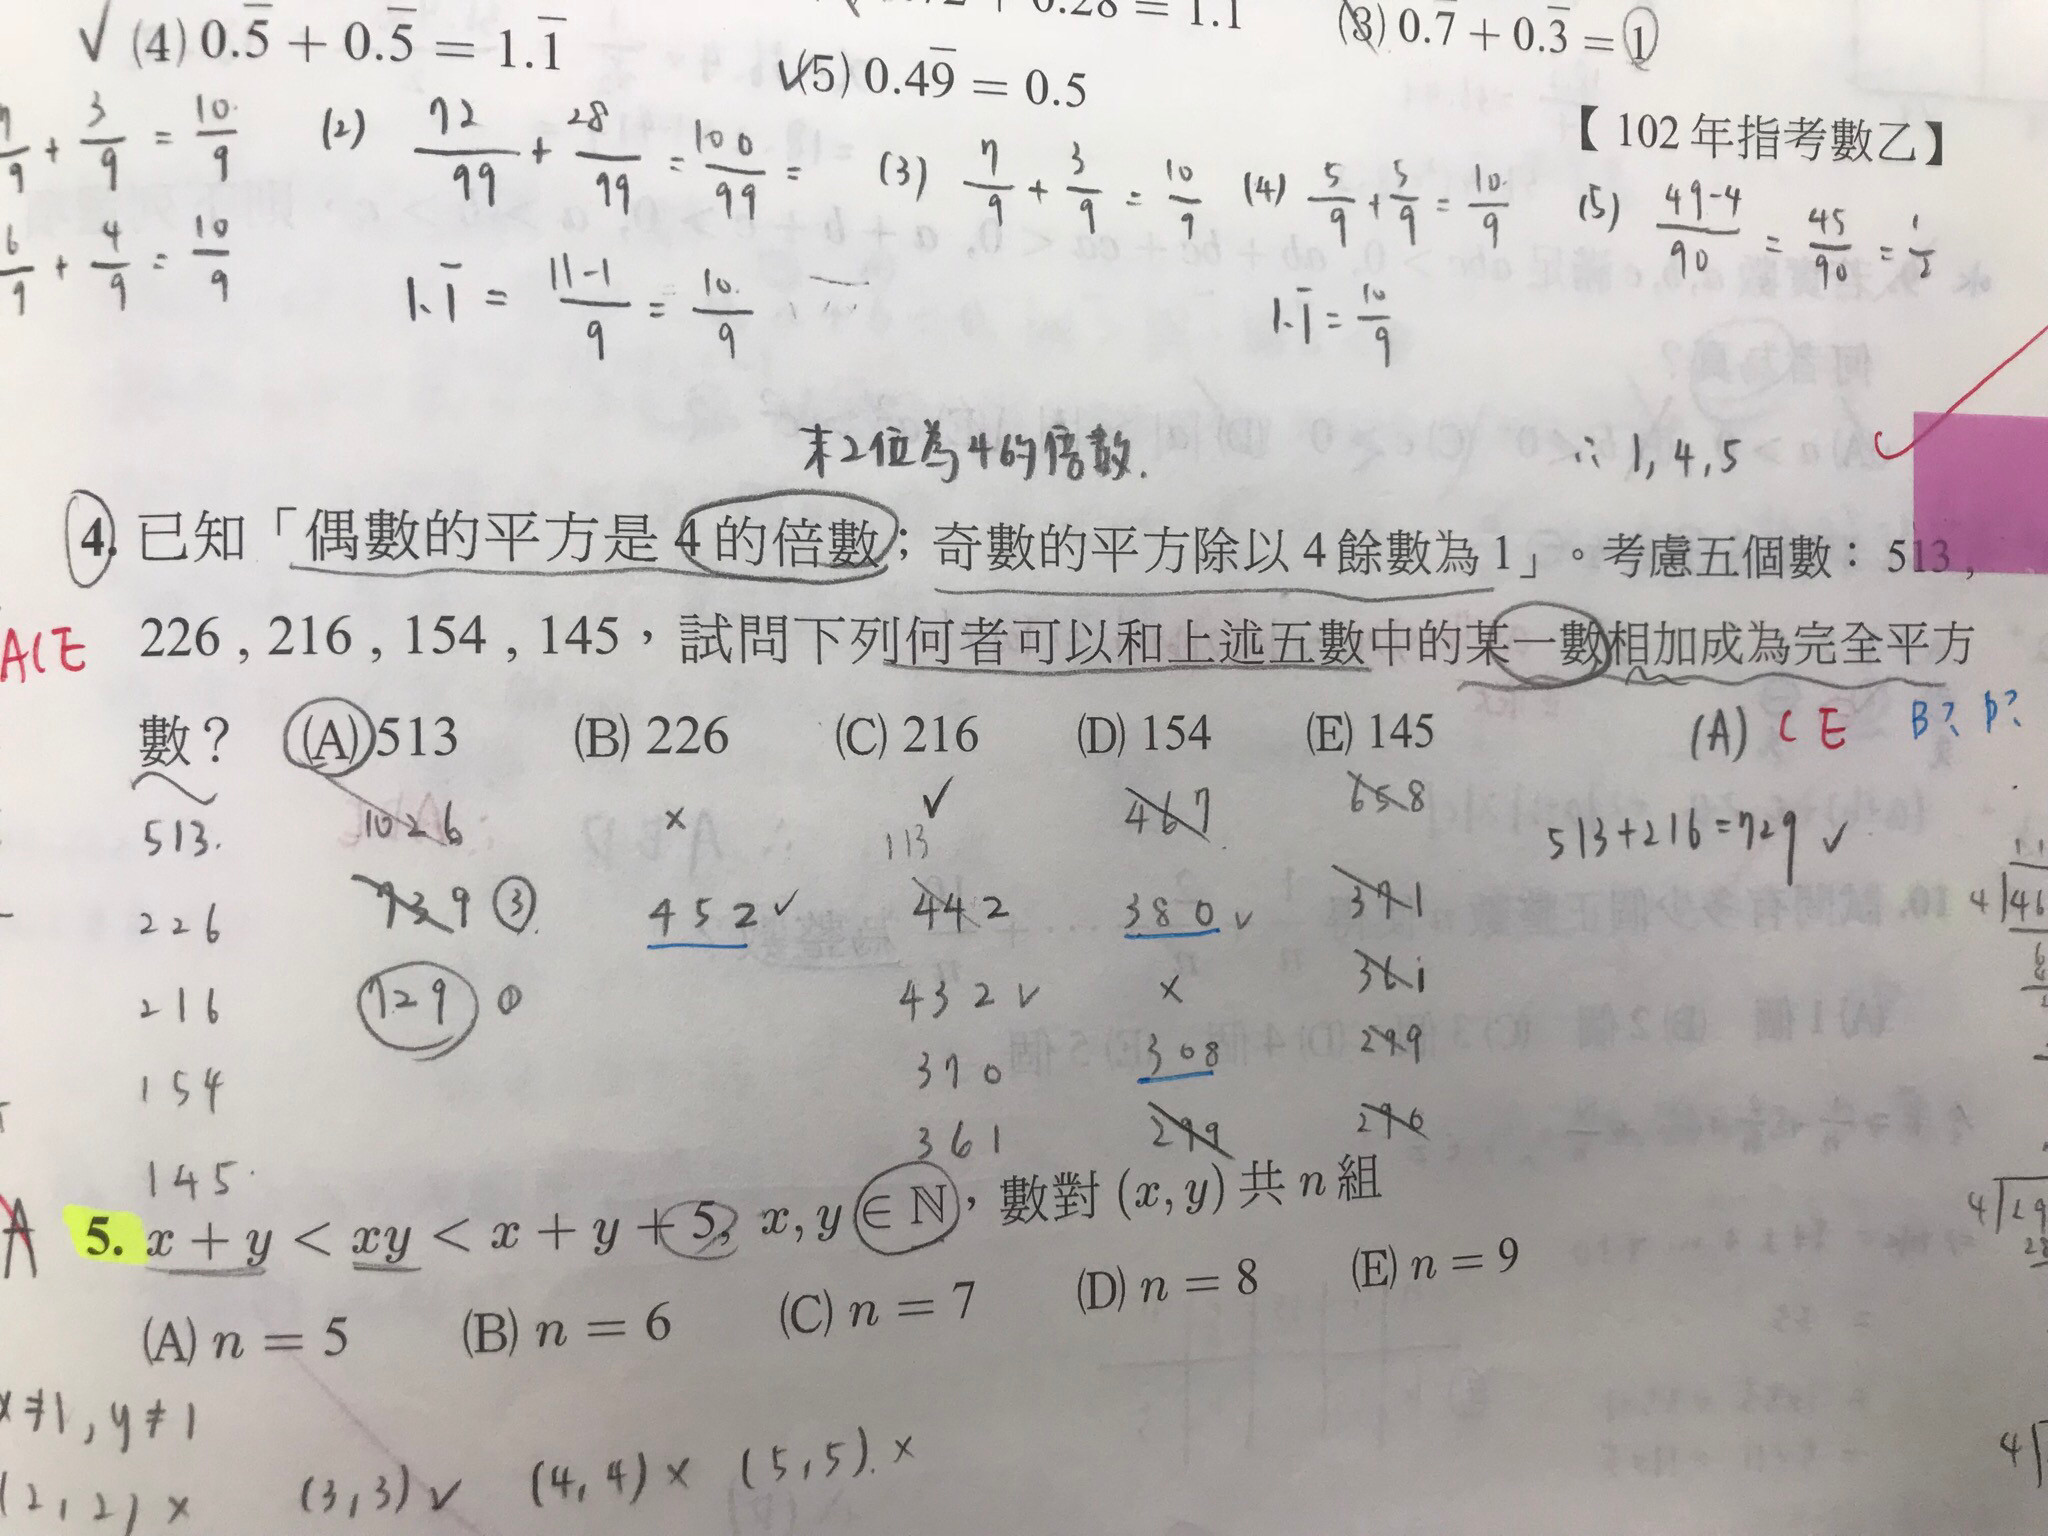 √ (4) 0.5̅ + 0.5̅ = 1.1̅
+ 0.28 = 1.1
(3) 0.7̅ + 0.3̅ = 1
√(5) 0.49̅ = 0.5
【102 年指考數乙】
7/9 + 3/9 = 10/9
(2) 72/99 + 28/99 = 100/99 =
(3) 7/9 + 3/9 = 10/9
(4) 5/9 + 5/9 = 10/9
(5) 49-4/90 = 45/90 = 1/2
6/9 + 4/9 = 10/9
1.1̅ = 11-1/9 = 10/9
1.1̅ = 10/9
末2位為4的倍數.
∴ 1, 4, 5
4. 已知「偶數的平方是 4 的倍數；奇數的平方除以 4 餘數為 1」。考慮五個數：513 ,
ACE
226 , 216 , 154 , 145，試問下列何者可以和上述五數中的某一數相加成為完全平方
數？ (A) 513 (B) 226 (C) 216 (D) 154 (E) 145
(A) C E B? D?
513. 1026 × ✓ 467 658
113
513+216=729 ✓
226 739 ③. 452 ✓ 442 380 ✓ 371
216 729 ① 432 ✓ × 361
154 370 308 299
145. 361 299 290
A
5. x + y < xy < x + y + 5, x, y ∈ ℕ，數對 (x, y) 共 n 組
(A) n = 5 (B) n = 6 (C) n = 7 (D) n = 8 (E) n = 9
x≠1, y≠1
(2, 2) × (3, 3) ✓ (4, 4) × (5, 5). ×